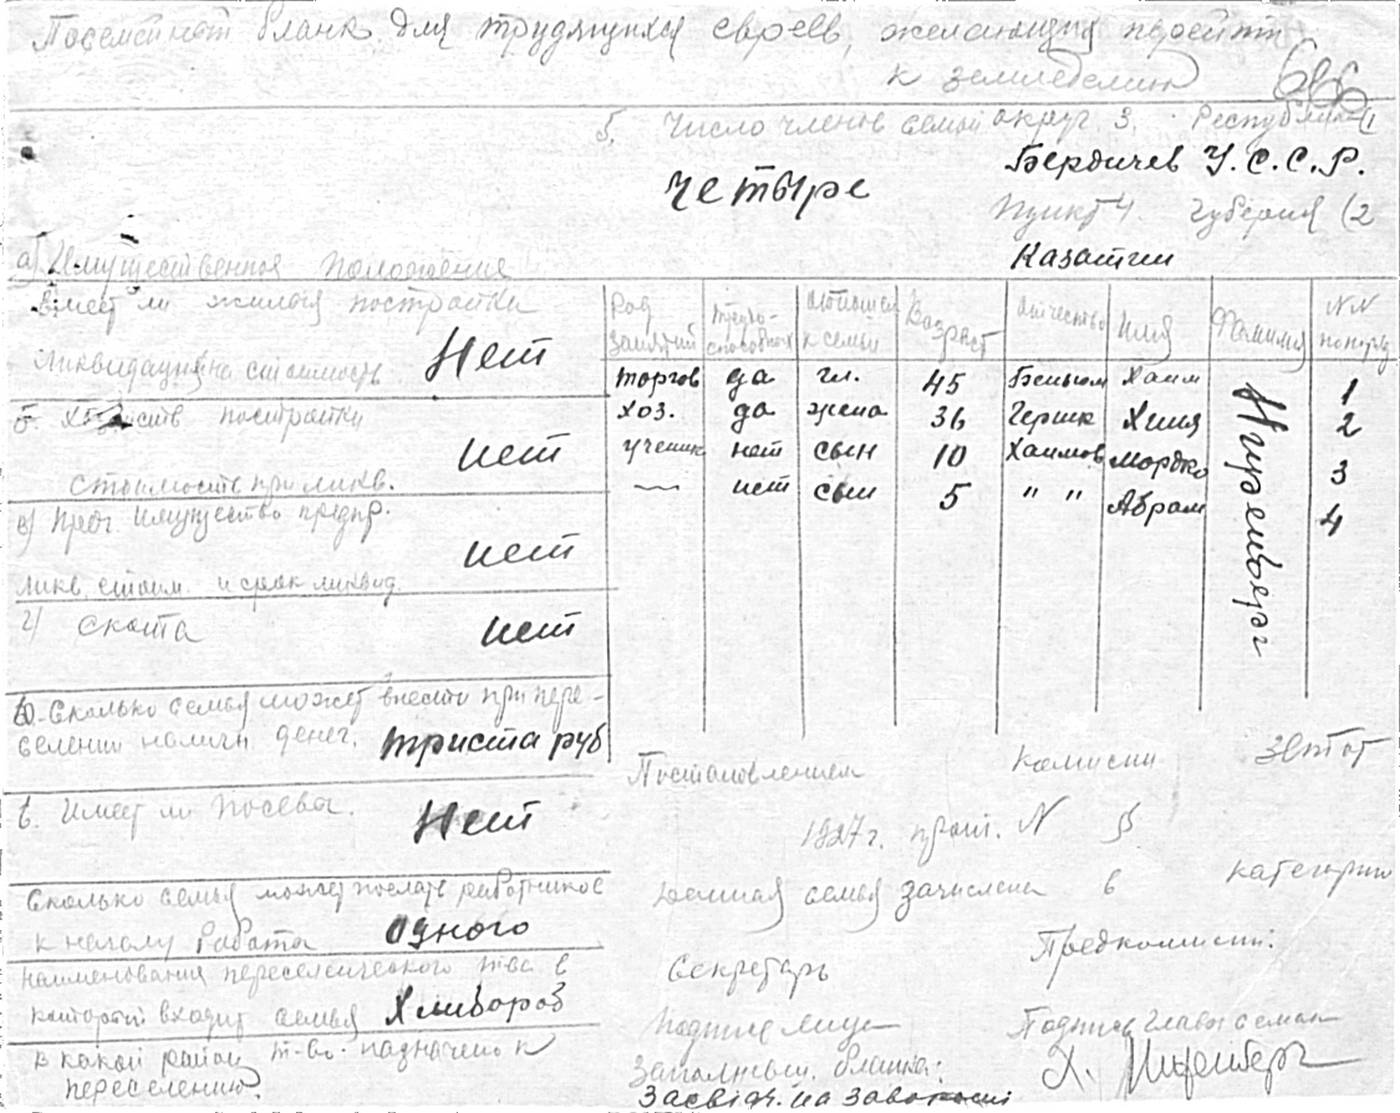 Посемейный бланк для трудящихся евреев, желающих перейти
к земледелию
5. Число членов семьи
четыре
округ 3. Республика (1
Бердичев У.С.С.Р.
Пункт 4. Губерния (2
Казатин
а) Имущественное положение
имеет ли жилыя постройки
Нет
ликвидацион. стоимость
б. хозяйств постройки
нет
стоимость при ликв.
в) Проч. имущество предпр.
нет
ликв. стоим. и срок ликвид.
г) скота
нет
Сколько семья может внести при пере-
селении наличн. денег. триста руб
в. Имеет ли посевы.
Нет
Сколько семья может послать работников
к началу работа одного
наименования переселенческого т-ва в
который входит семья Хлибороб
в какой район т-во назначено к
переселению
Род занятий | трудо-способност | отношен к семьи | Возраст | отчество | имя | Фамилия | NN по поряд
торгов | да | гл. | 45 | Беньом | Хаим | 1
хоз. | да | жена | 36 | Гершк | Хиня | 2
ученик | нет | сын | 10 | Хаимов | Мордко | 3
— | нет | сын | 5 | " " | Абрам | 4
Постановлением комисии
1927г. прот. N
данная семья зачислена в категорию
Секретарь
Предкомисии:
Подпись лица
Подпись главы семьи
заполнивш. бланка:
Х.